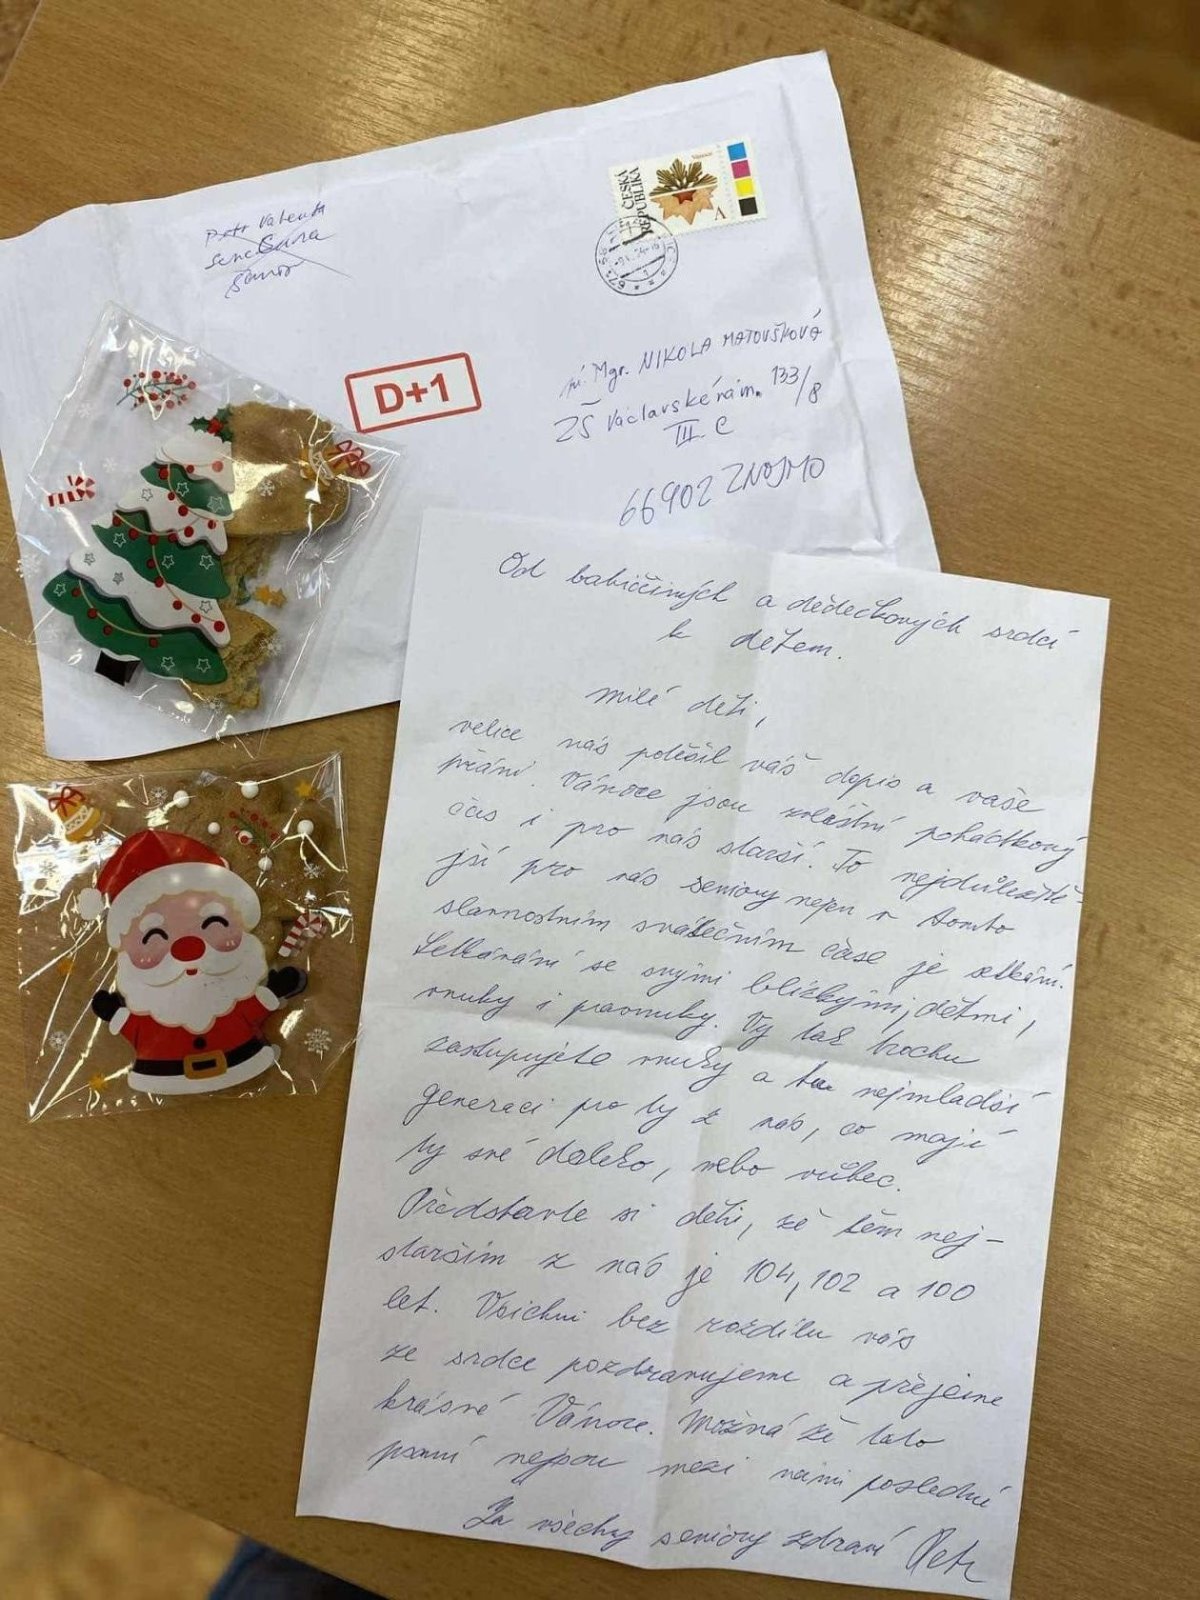 Petr Valenta
ČESKÁ
REPUBLIKA
Vánoce
A
D+1
Mgr. NIKOLA MATOUŠKOVÁ
ZŠ Václavské nám. 133/8
III. C
66902 ZNOJMO
Od babiččiných a dědečkových srdcí
k dětem.
Milé děti,
velice nás potěšil váš dopis a vaše
přání. Vánoce jsou zvláštní pohádkový
čas i pro nás starší. To nejdůležitě-
jší pro nás seniory nejen v tomto
slavnostním svátečním čase je setkání.
Setkávání se svými blízkými, dětmi,
vnuky i pravnuky. Vy tak trochu
zastupujete vnuky a tu nejmladší
generaci pro ty z nás, co mají
ty své daleko, nebo vůbec.
Představte si děti, že těm nej-
starším z nás je 104, 102 a 100
let. Všichni bez rozdílu vás
ze srdce pozdravujeme a přejeme
krásné Vánoce. Možná že tato
psaní nejsou mezi námi poslední
Za všechny seniory zdraví Petr